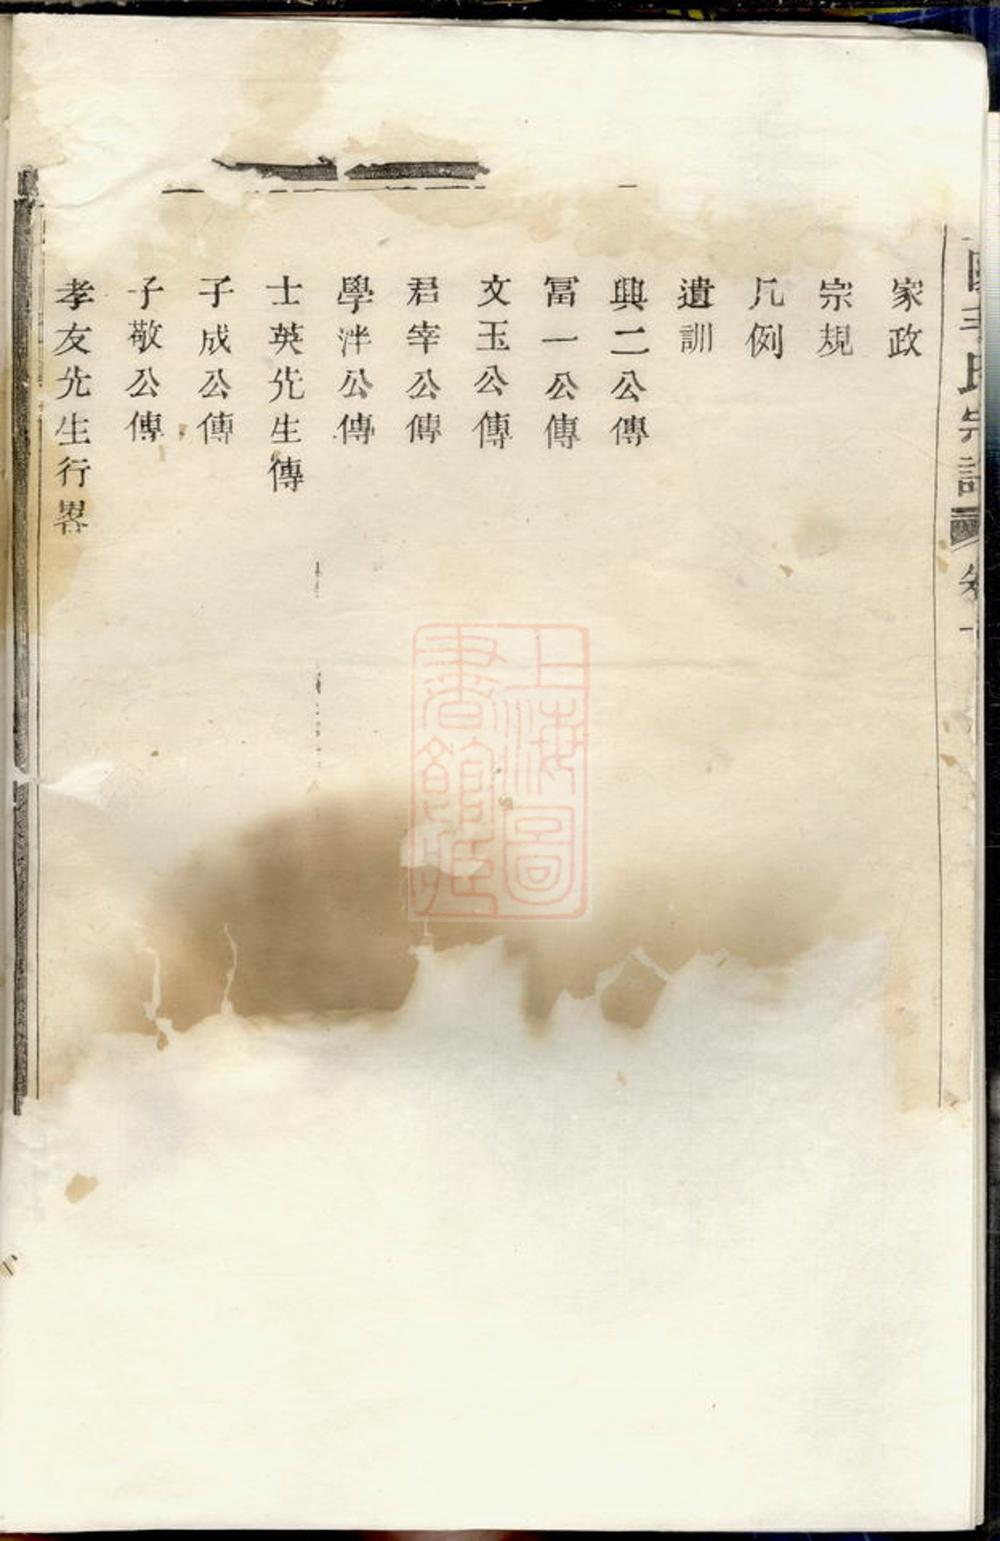 家政
宗規
凡例
遺訓
興二公傳
冨一公傳
文玉公傳
君宰公傳
學泮公傳
士英先生傳
子成公傳
子敬公傳
孝友先生行畧
上海圖書館藏